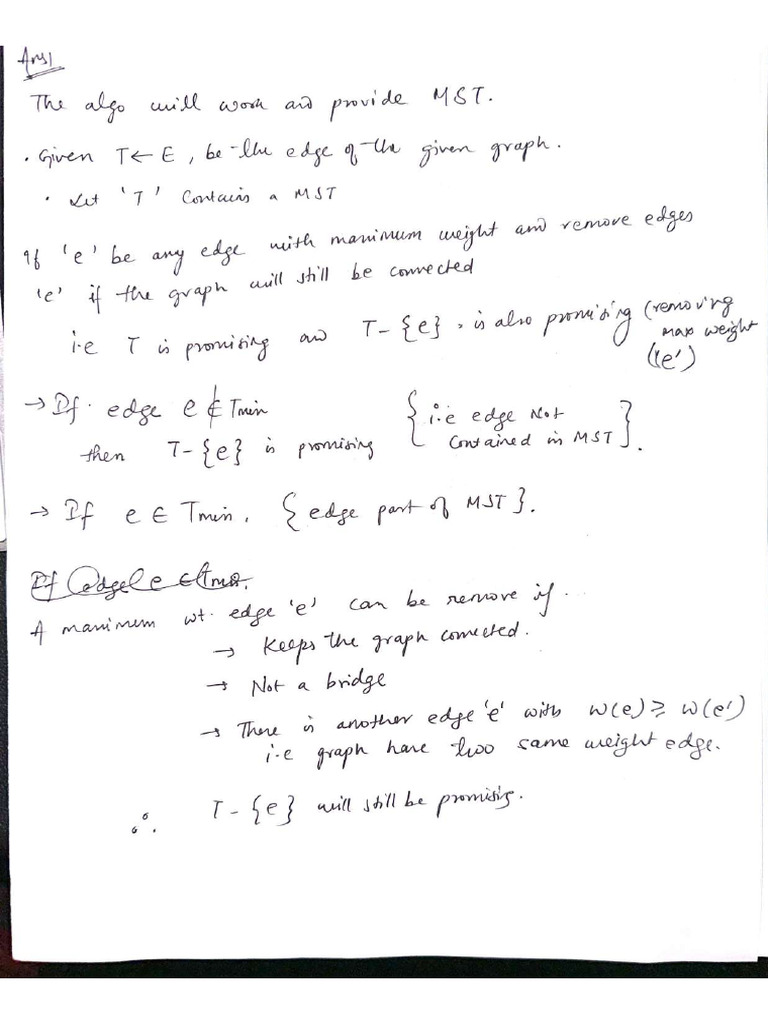 Ans1
The algo will work and provide MST.
. Given T ← E, be the edge of the given graph.
. Let 'T' Contains a MST
If 'e' be any edge with maximum weight and remove edges
'e' if the graph will still be connected
i.e T is promising and T - {e}, is also promising (removing
max weight
('e')
→ If. edge e ∉ Tmin {i.e edge Not
then T- {e} is promising Contained in MST}.
→ If e ∈ Tmin, {edge part of MST}.
A maximum wt. edge 'e' can be remove if.
→ Keeps the graph connected.
→ Not a bridge
→ There is another edge 'e' with w(e) ⩾ w(e')
i.e graph have two same weight edge.
∴ T - {e} will still be promising.